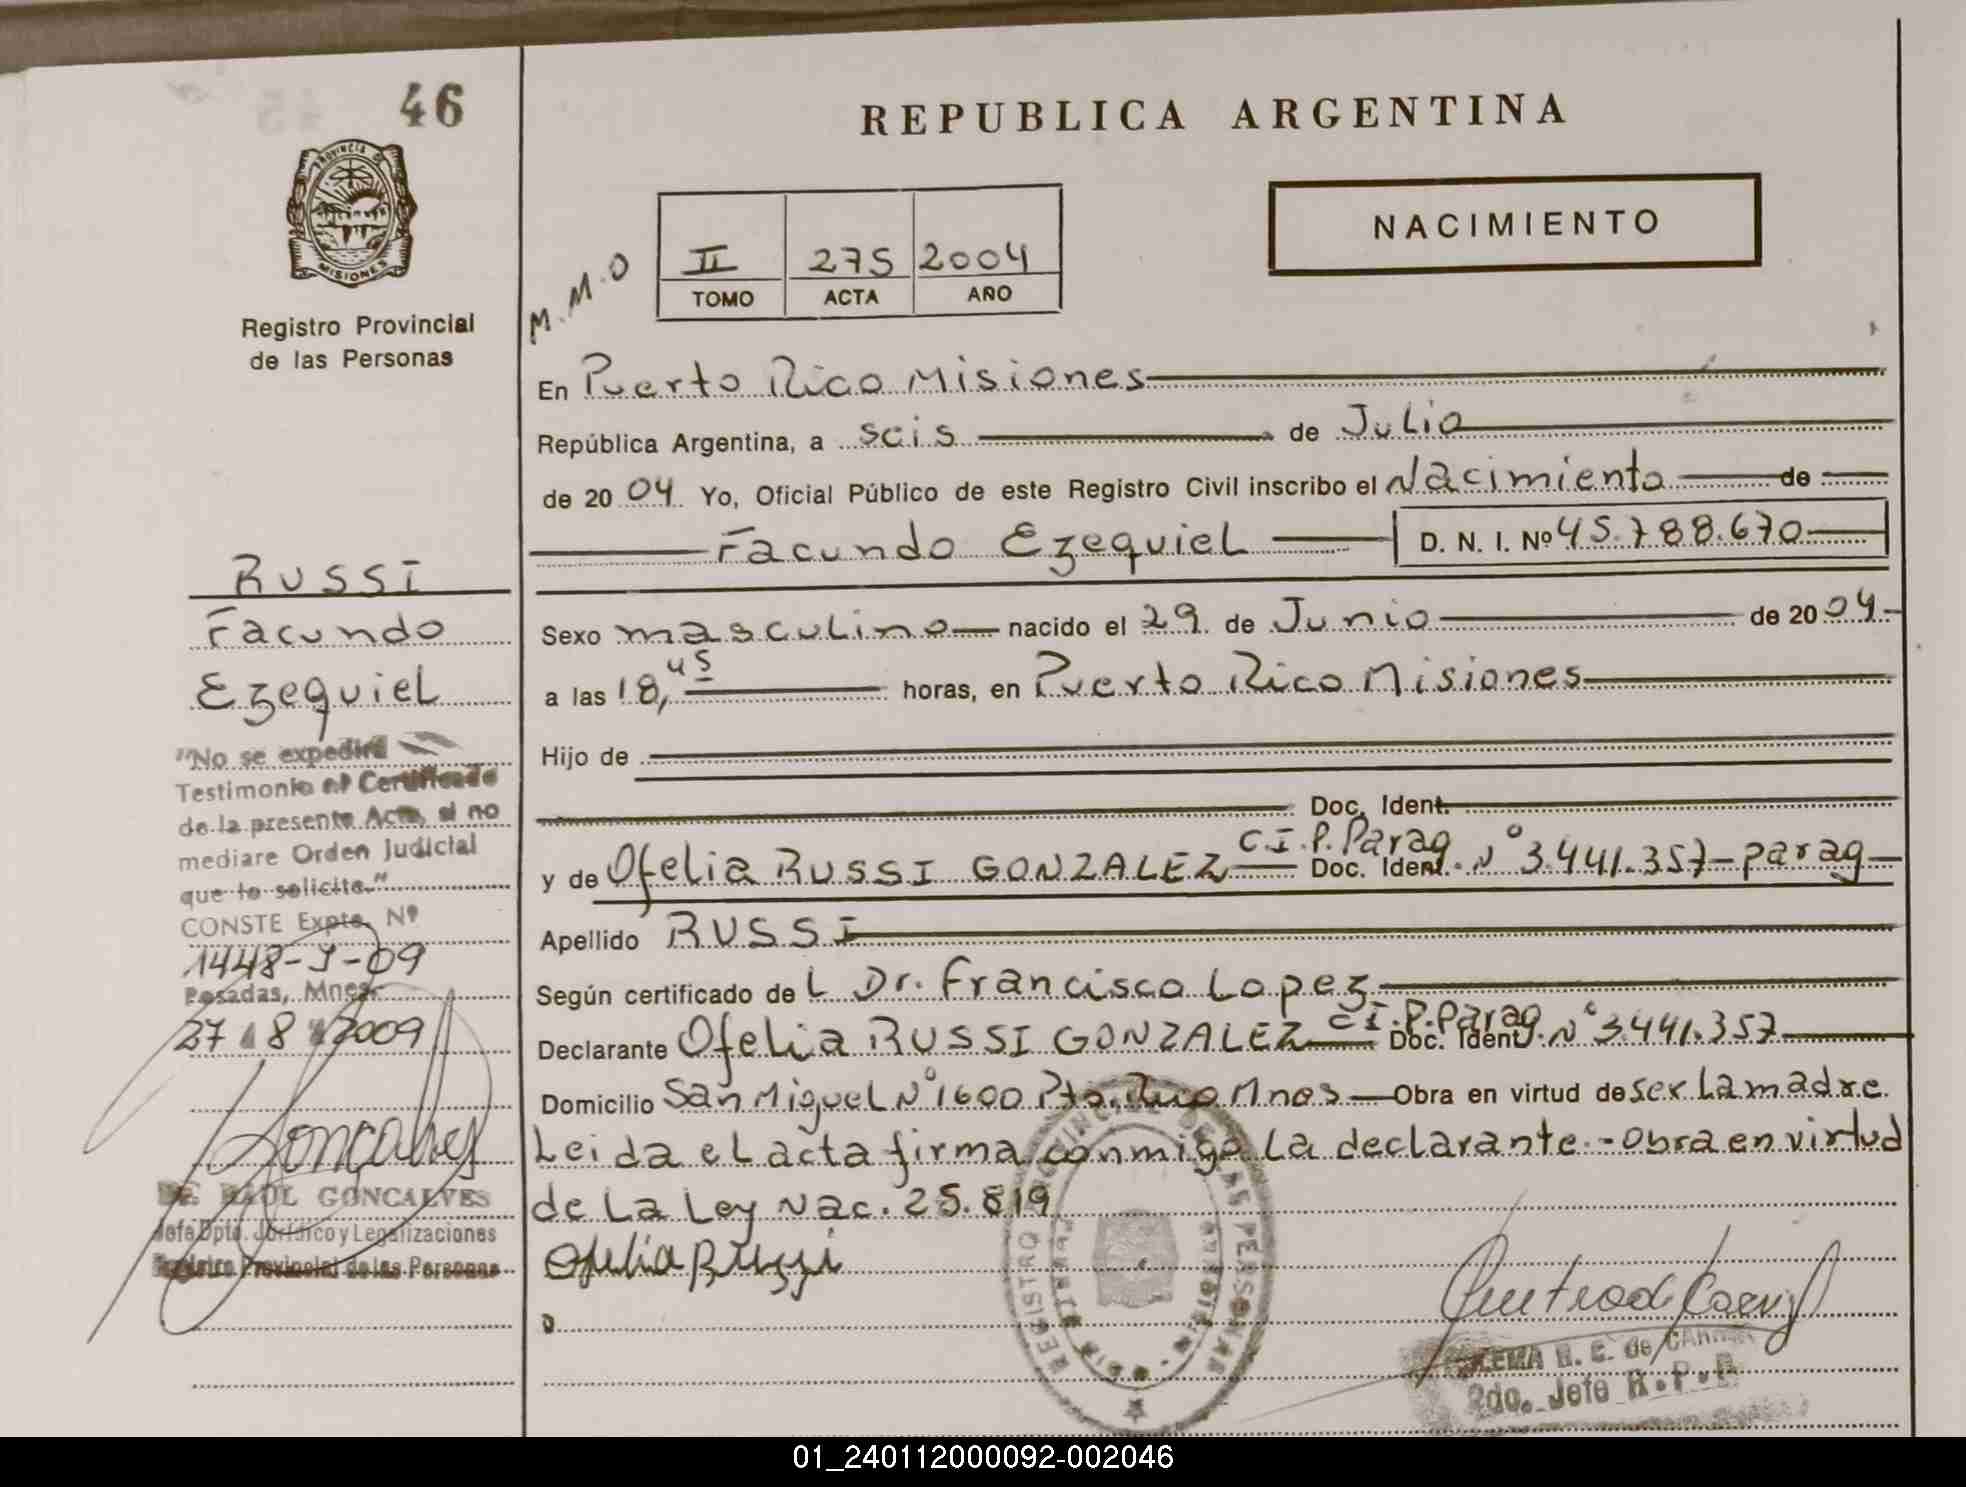 46
PROVINCIA DE
MISIONES
Registro Provincial
de las Personas
RUSSI
Facundo
Ezequiel
"No se expedirá
Testimonio ni Certificado
de la presente Acta, si no
mediare Orden Judicial
que lo solicite."
CONSTE Expte. Nº
1448-J-09
Posadas, Mnes.
27 8 2009
Gonçalves
RAUL GONCALVES
Jefe Dpto. Jurídico y Legalizaciones
Registro Provincial de las Personas
REPUBLICA ARGENTINA
NACIMIENTO
M.M.O
II 275 2004
TOMO ACTA AÑO
En Puerto Rico Misiones
República Argentina, a seis de Julio
de 2004 Yo, Oficial Público de este Registro Civil inscribo el Nacimiento de
Facundo Ezequiel D. N. I. Nº 45.788.670
Sexo masculino nacido el 29 de Junio de 2004
a las 18,45 horas, en Puerto Rico Misiones
Hijo de
Doc. Ident.
y de Ofelia RUSSI GONZALEZ C.I.P.Parag Doc. Ident. Nº 3.441.357-parag
Apellido RUSSI
Según certificado del Dr. Francisco Lopez
Declarante Ofelia RUSSI GONZALEZ C.I.P.Parag Doc. Ident. Nº 3.441.357
Domicilio San Miguel Nº 1600 Pto. Rico Mnes Obra en virtud de ser la madre.
Leida el acta firma conmigo la declarante.-Obra en virtud
de la Ley Nac. 25.819
Ofelia Russi
REGISTRO PROVINCIAL DE LAS PERSONAS
2do. Jefe R.P.P.
01_240112000092-002046